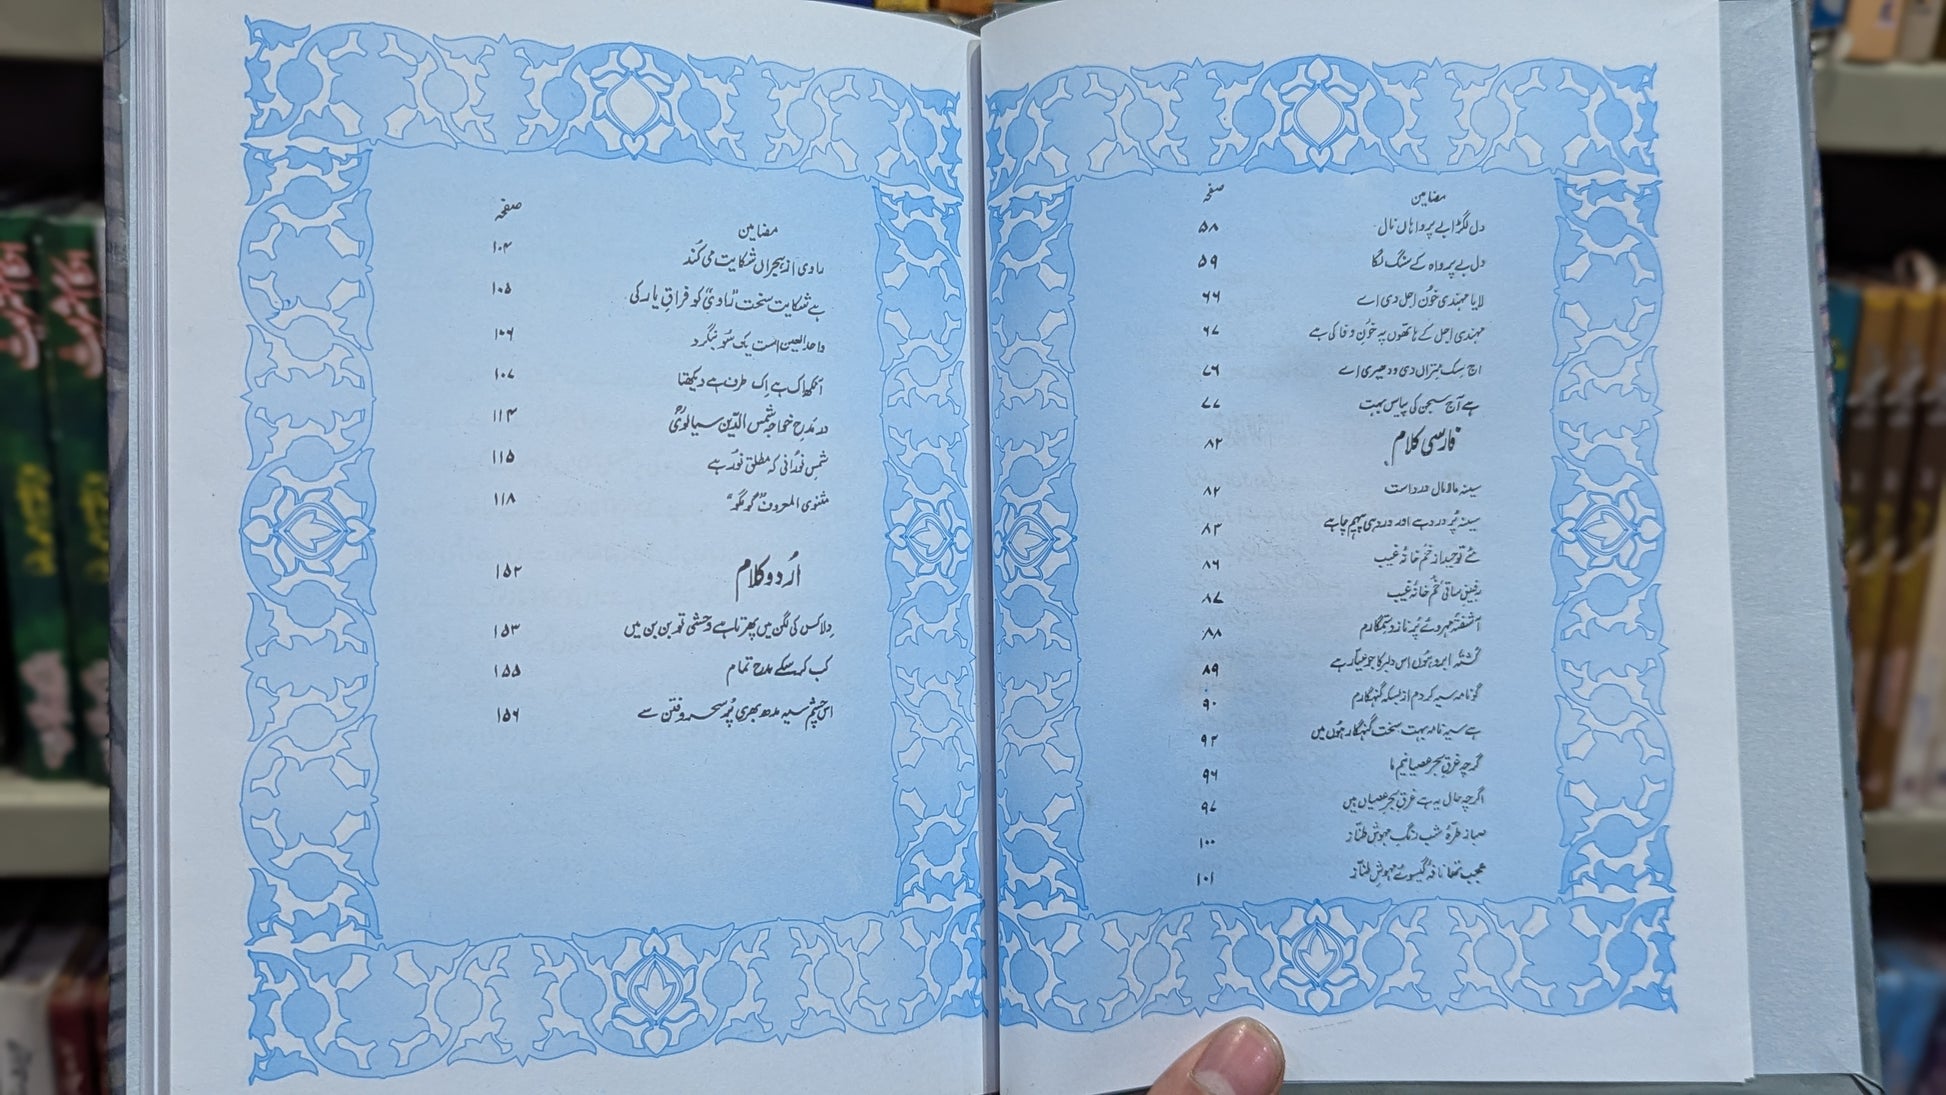 مضامین صفحہ
دل لگڑا بے پرواہاں نال ۵۸
دل بے پرواہ کے سنگ لگا ۵۹
لایا مہندی خُون اجل دی اے ۶۶
مہندی اجل کے ہاتھوں پہ خُونِ وفا کی ہے ۶۷
اج سِک مِتراں دی ودھیری اے ۷۶
ہے آج سجن کی پیاس بہت ۷۷
فارسی کلام ۸۲
سینہ مالامال درد است ۸۲
سینہ پُر درد ہے اور درد ہی پیہم چاہیے ۸۳
مئے توحید از خُم خانۂ غیب ۸۶
ساقیٔ خُم خانۂ غیب ۸۷
آشفتۂ مہروئے پُر ناز و ستمگارم ۸۸
کُشتۂ ابرو ہُوں اس دلبر کا جو عیّار ہے ۸۹
گو نامہ سیہ کردم از بسکہ گنہگارم ۹۰
ہے سیہ نامہ بہت سخت گنہگار ہُوں میں ۹۲
گرچہ غرقِ بحرِ عصیانیم ما ۹۶
اگرچہ حال یہ ہے غرقِ بحرِ عصیاں ہیں ۹۷
صبا ز طرۂ شب رنگ مہوشِ طنّاز ۱۰۰
عجب تھا نافۂ گیسوئے مہوشِ طنّاز ۱۰۱
مضامین صفحہ
ہادی از ہجراں شکایت می کُند ۱۰۴
ہے شکایت سخت "ہادی" کو فراقِ یار کی ۱۰۵
واحد العین است یک سُو بنگرد ۱۰۶
آنکھ اِک ہے اِک طرف ہے دیکھتا ۱۰۷
در مدَح خواجہ شمس الدّین سیالویؒ ۱۱۴
شمسِ نُورانی کہ مطلق نُور ہے ۱۱۵
مثنوی المعروف "گو مگو" ۱۱۸
اُردو کلام ۱۵۲
دِلا کس کی لگن میں پھر رہا ہے وحشی تو بن بن میں ۱۵۳
کب کر سکے مدح تمام ۱۵۵
اس چشمِ سیہ مدھ بھری پُر سحر و فتن سے ۱۵۶